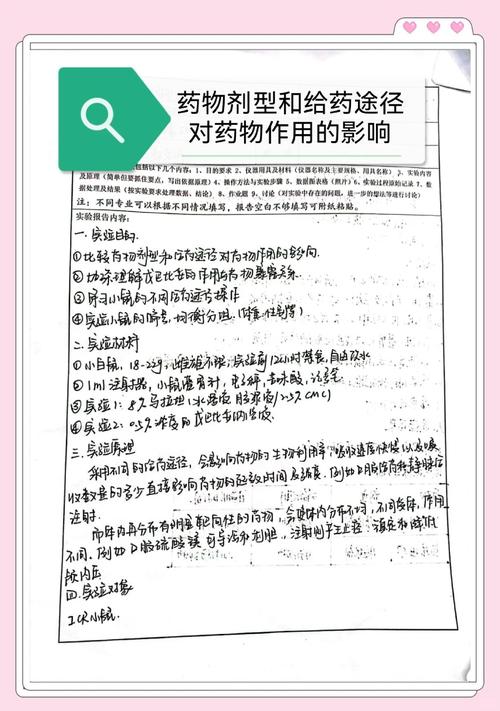 药物剂型和给药途径
对药物作用的影响
包括以下几个内容：1、目的要求 2、仪器用具及材料（仪器名称及主要规格、用具名称） 3、实验内容
及原理（简单但要抓住要点，写出依据原理） 4、操作方法与实验步骤 5、数据图表格（照片） 6、实验过程原始记录 7、数
据处理及结果（按实验要求处理数据、结论） 8、作业题 9、讨论（对实验中存在的问题、进一步的想法等进行讨论）
注：不同专业可以根据不同情况填写，报告空白不够填写可附纸粘贴。
实验报告内容：
一.实验目的
①比较药物剂型和给药途径对药物作用的影响
②加深理解戊巴比妥的作用与药物暴露关系
③学习小鼠的不同给药途径操作
④实验小鼠的编号,均衡分组.(体重,性别等)
二.实验材料
①小白鼠,18-22g,雌雄不限,实验前12小时禁食,自由饮水
②1ml注射器,小鼠灌胃针,电子秤,苦味酸,
③实验1: 8%乌拉坦(水溶液 胶浆液/2.5% CMC)
④实验2: 0.5%浓度的戊巴比妥钠溶液
三.实验原理
采用不同的给药途径,会影响药物的生物利用率,吸收速度快慢以及吸
收数量的多少直接影响药物的起效时间及强度.例如口服给药和静脉给
注射.
而体内分布有明显靶向性的药物,会因体内分布不均,不同条件,作用
不同.例如口服硫酸镁可导泻和利胆,注射则产生止痉,镇痉和降低
颅内压
四.实验对象
ICR小鼠.